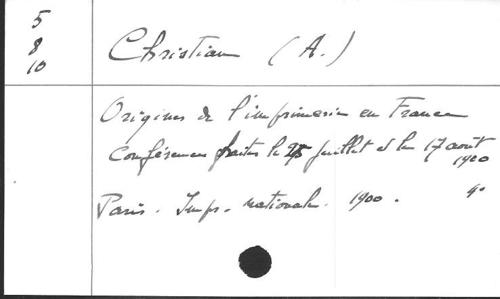 5
8
10
Christian (A.)
Origines de l'imprimerie en France
Conférences faites le 25 juillet et le 17 août
1900
Paris. Imp. nationale. 1900. 4°